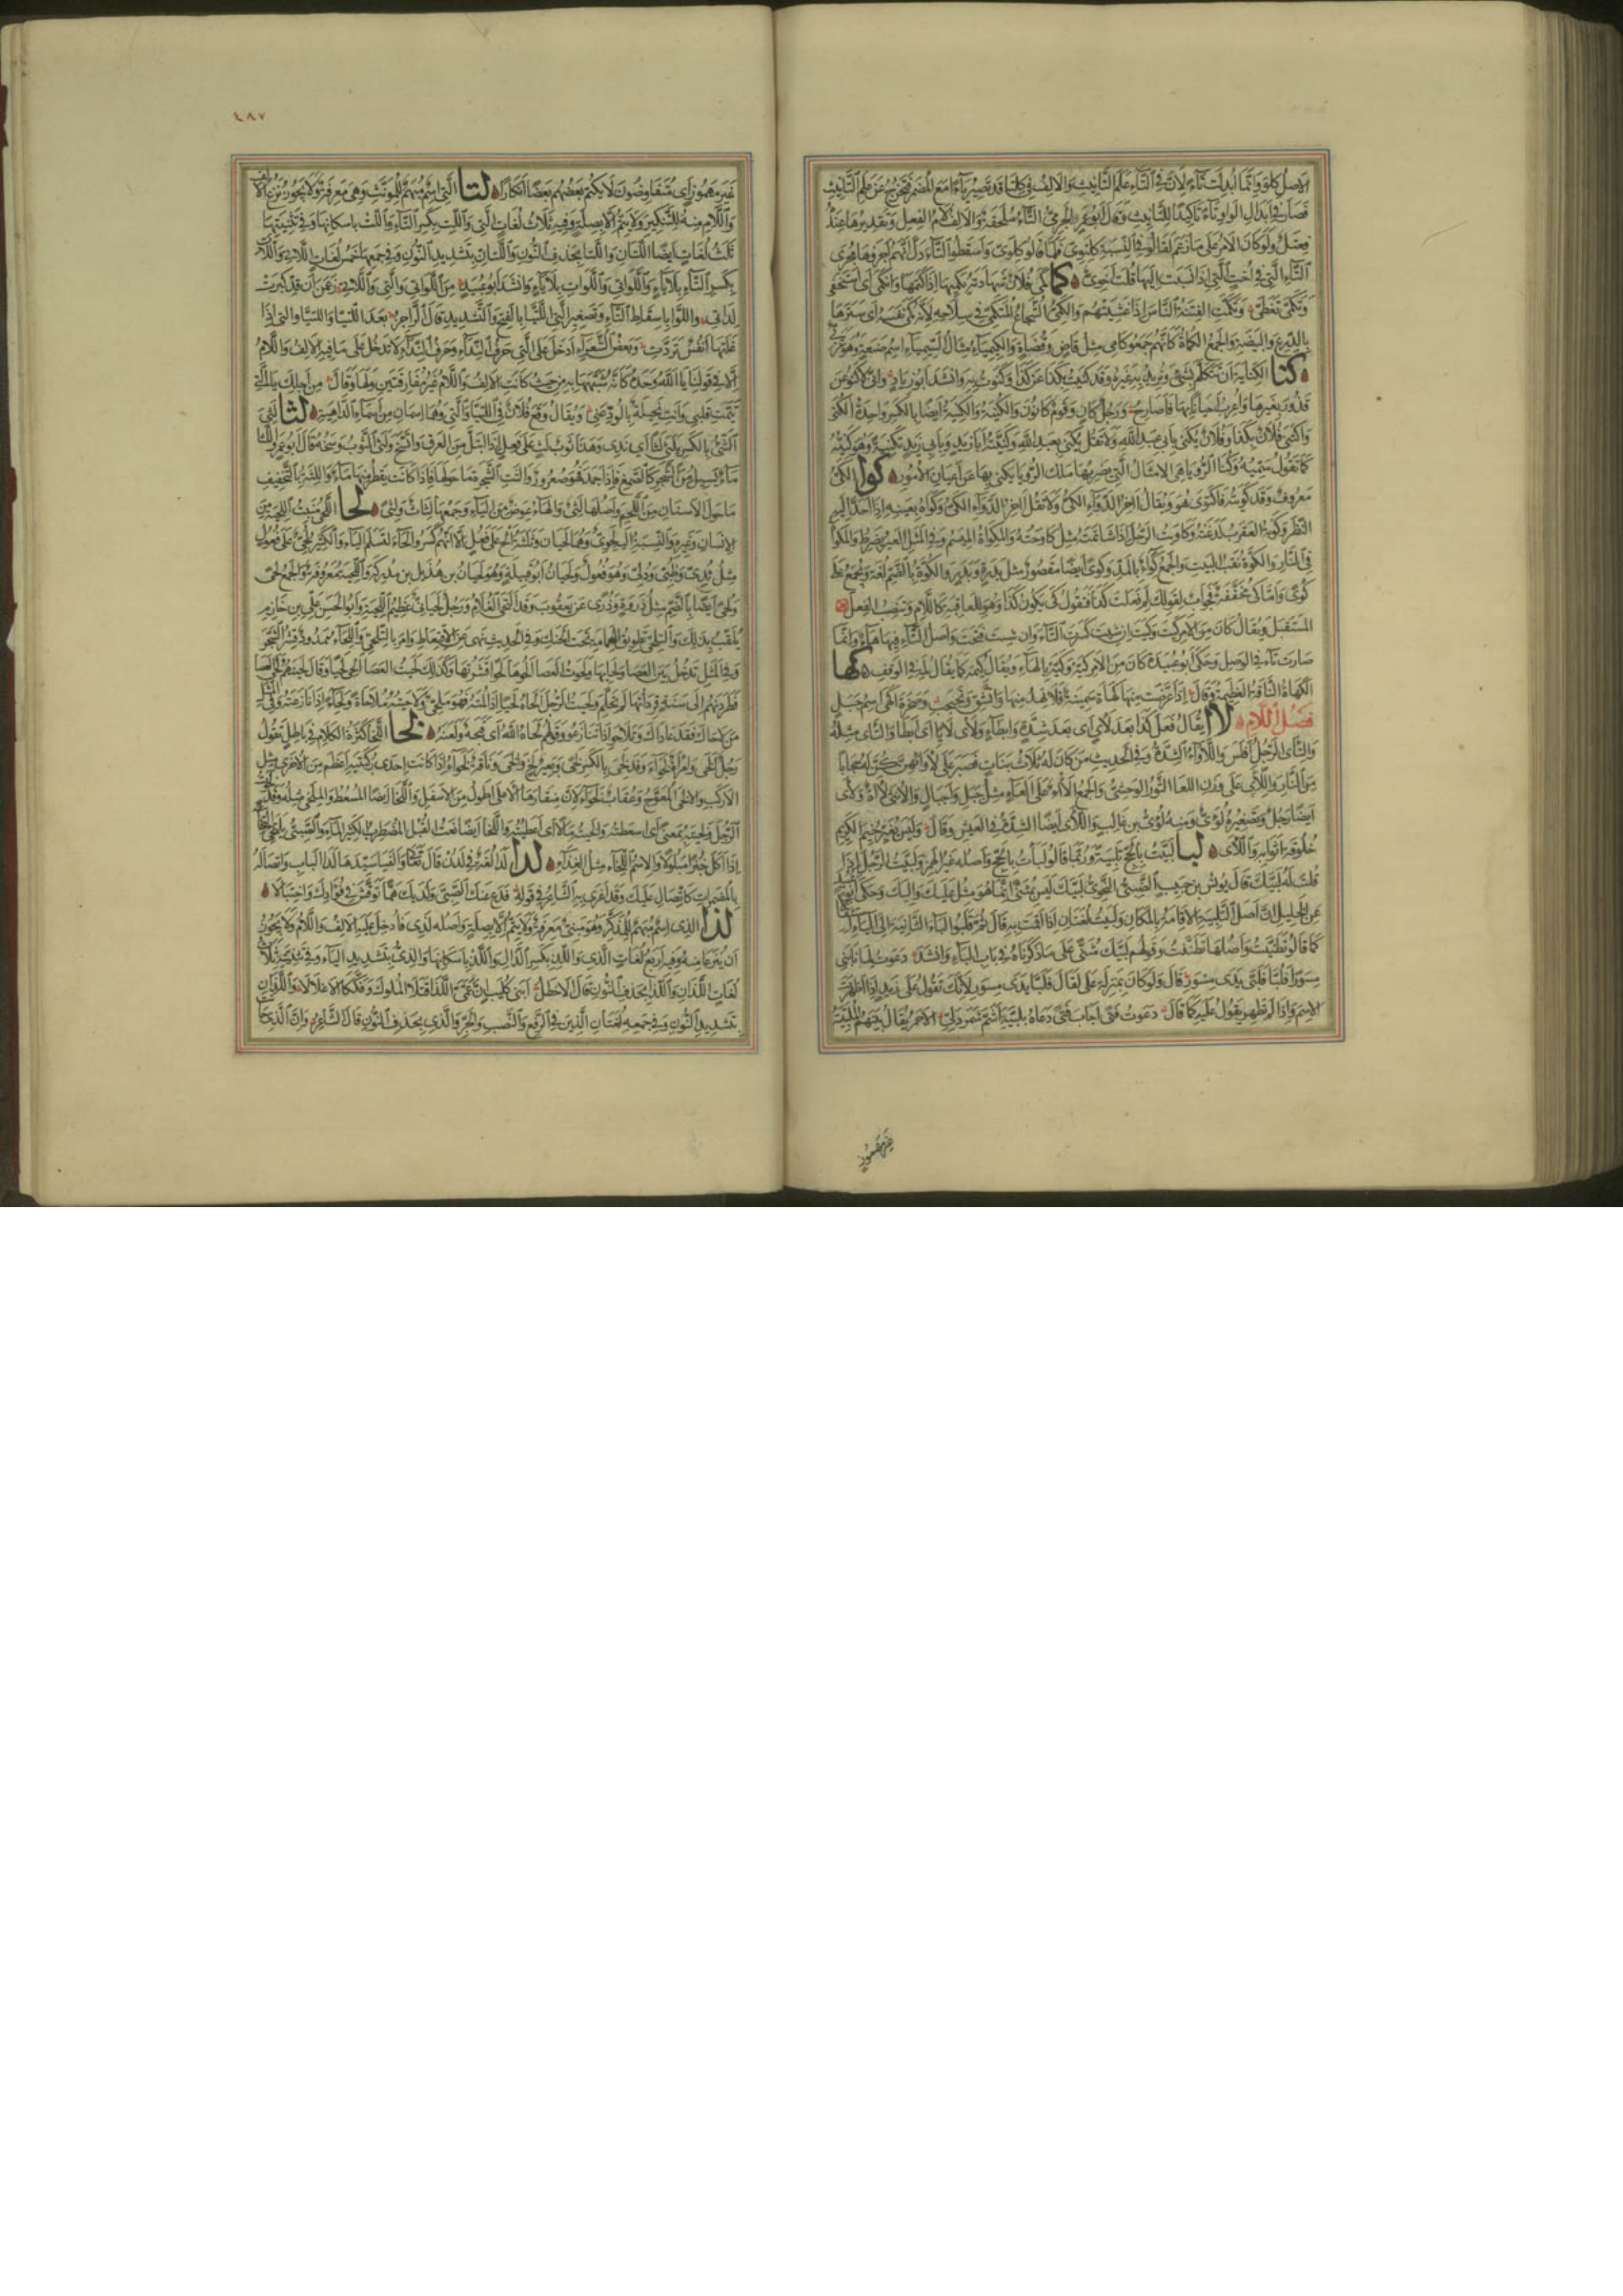 الاصل كلوى وانما ابدلت تاء لان في التاء علم التانيث والالف في كلتا قد تصير ياء مع المضمر فتخرج عن علم التانيث
فصار في ابدال الواو تاء تاكيدا للتانيث وقال ابو عمر الجرمي التاء ملحقة والالف لام الفعل وتقديرها عنده
فعتل ولو كان الامر على ما زعم لقالوا في النسبة كلتوى فلما قالوا كلوى واسقطوا التاء دل انهم اجروها مجرى
التاء التي في اخت التي اذا نسبت اليها قلت اخوى كما كمى فلان شهادته يكميها اذا كتمها وانكمى اى استخفى
وتكمى تغطى وتكمت الفتنة الناس اذا غشيتهم والكمى الشجاع المتكمى في سلاحه لانه كمى نفسه اى سترها
بالدرع والبيضة والجمع الكماة كانهم جمعوا كامى مثل قاض وقضاة والكيمياء مثال السيمياء اسم صنعة وهو عربى
كنا الكناية ان تتكلم بشئ وتريد به غيره وقد كنيت بكذا عن كذا وكنوت به وانشد ابو زياد وانى لاكنو عن
قذور بغيرها واعرب احيانا بها فاصارح ورجل كان وقوم كانون والكنية والكنية ايضا بالكسر واحدة الكنى
واكتنى فلان بكذا وفلان يكنى بابى عبد الله ولا تقل يكنى بعبد الله وكنيته ابا زيد وبابى زيد تكنية وهو كنيه
كما تقول سميه وكنا الرؤيا هى الامثال التي يضربها ملك الرؤيا يكنى بها عن اعيان الامور كوى الكى
معروف وقد كويته فاكتوى هو ويقال اخر الدواء الكى ولا تقل اخر الداء الكى وكواه بعينه اذا احد اليه
النظر وكوته العقرب لدغته وكاويت الرجل اذا شاتمته مثل كاوحته والمكواة الميسم وفي المثل العير يضرط والمكوا
في النار والكوة نقب البيت والجمع كواء بالمد وكوى ايضا مقصور مثل بدرة وبدر والكوة بالضم لغة وتجمع على
كوى واما كى مخففة فجواب لقولك لم فعلت كذا فتقول كى يكون كذا وهو للعاقبة كاللام وتنصب الفعل
المستقبل ويقال كان من الامر كيت وكيت ان شئت كسرت التاء وان شئت فتحت واصل التاء فيها هاء وانما
صارت تاء في الوصل وحكى ابو عبيدة كان من الامر كيه وكيه بالهاء ويقال كيمه كما يقال لمه في الوقف كها
الكهاة الناقة العظيمة وقال اذا عرضت منها كهاة سمينة فلا تهد منها واتشق وتجبجب وصخرة اكهى اسم جبل
فصل اللام لاا يقال فعل كذا بعد لاى اى بعد شدة وابطاء ولاى لايا اى ابطا والتاى مثله
والتاى الرجل افلس واللاواء الشدة وفي الحديث من كان له ثلاث بنات فصبر على لاوائهن كن له حجابا
من النار واللاى على وزن اللعا الثور الوحشى والجمع الاء على العاء مثل جبل واجبال والانثى لاة ولاى
ايضا رجل وتصغيره لؤى ومنه لؤى بن غالب واللاى ايضا الشدة في العيش وقال وليس يغير خيم الكريم
خلوقة اثوابه واللاى لبا لبيت بالحج تلبية وربما قالوا لبات بالحج واصله غير الهمز ولبيت الرجل اذا
قلت له لبيك قال يونس بن حبيب الضبى النحوى لبيك ليس بمثنى انما هو مثل عليك واليك وحكى ابو عبيد
عن الخليل ان اصل التلبية الاقامة بالمكان ولبيت لغتان اذا اقمت به قال ثم قلبوا الباء الثانية الى الياء
كما قالوا تظنيت واصلها تظننت وقولهم لبيك مثنى على ما ذكرناه في باب الباء وانشد دعوت لما نابنى
مسورا فلبا فلبى يدى مسور قال ولو كان بمنزلة على لقال فلبا يدى مسور لانك تقول على زيد اذا اظهرت
الاسم واذا لم تظهر تقول عليه كما قال دعوت فتى اجاب فتى دعاه بلبيه اشم شمردلى الاحمر يقال بينهم الملتبية
غير مهموز
٤٨٧
غير مهموز اى متفاوضون لا يكتم بعضهم بعضا انكارا لتا التي اسم مبهم للمؤنث وهي معرفة ولا يجوز نزع الالف
واللام منه للتنكير ولا يتم الا بصلة وفيه ثلاث لغات التى واللت بكسر التاء واللت باسكانها وفي تثنيتها
ثلث لغات ايضا اللتان واللتا بحذف النون واللتان بتشديد النون وفي جمعها خمس لغات اللاتى واللات
بكسر التاء بلا ياء واللواتى واللوات بلا ياء وانشد ابو عبيد من اللواتى والتى واللاتى زعمن ان قد كبرت
لداتى واللوا باسقاط التاء وتصغير التى اللتيا بالفتح والتشديد قال الراجز بعد اللتيا واللتيا والتى اذا
علتها انفس تردت وبعض الشعراء ادخل على التى حرف النداء وحرف النداء لا تدخل على ما فيه الالف واللام
الا في قولنا يا الله وحده كانه شبهها به من حيث كانت الالف واللام غير مفارقتين ولها وقال من اجلك يا التى
تيمت قلبي وانت بخيلة بالود عنى ويقال وقع فلان في اللتيا والتى وهما اسمان من اسماء الداهية لثا لثى
الشئ بالكسر يلثى لثا اى ندى وهذا ثوب لث على فعل اذا ابتل من العرق واتسخ ولثى الثوب وسخه قال ابو عمرو اللثا
ماء يسيل من الشجر كالصمغ فاذا جمد فهو صعرور والثت الشجرة ما حولها اذا كانت يقطر منها ماء واللثة بالتخفيف
ما حول الاسنان من اللحم واصلها لثى والهاء عوض من الياء وجمعها لثات ولثى لحا اللحى منبت اللحية من
الانسان وغيره والنسبة اليه لحوى وهما لحيان وثلثة الح على فعل الا انهم كسروا الحاء لتسلم الياء والكثير لحى على فعول
مثل ثدى وظبى ودلى وهو فعول ولحيان ابو قبيلة وهو لحيان بن هذيل بن مدركة واللحية معروفة والجمع لحى
ولحى ايضا بالضم مثل ذروة وذرى عن يعقوب وقد التحى الغلام ورجل لحيانى عظيم اللحية وابو الحسن على بن خازم
يلقب بذلك والتلحى تطويق العمامة تحت الحنك وفي الحديث نهى عن الاقتعاط وامر بالتلحى واللحاء ممدود قشر الشجر
وفي المثل لا تدخل بين العصا ولحائها ولحوت العصا الحوها لحوا قشرتها وكذلك لحيت العصا الحى لحيا وقال لحيتهم لحى العصا
فطردنهم الى سنة قردانها لم تحلم ولحيت الرجل الحاه لحيا اذا لمته فهو ملحى ولاحيته ملاحاة ولحاء اذا نازعته وفي المثل
من لاحاك فقد عاداك وتلاحوا اذا تنازعوا وقولهم لحاه الله اى قبحه ولعنه لخا اللخا كثرة الكلام في باطل تقول
رجل الخى وامراة لخواء وقد لخى بالكسر لخى وبعير لخ والخى وناقة لخواء اذا كانت احدى ركبتيها اعظم من الاخرى مثل
الاركب والالخى المعوج وعقاب لخواء لان منقارها الاعلى اطول من الاسفل واللخا ايضا المسعط والملخى مثله وقد لخيت
الرجل والخيته بمعنى اى اسعطته والخيته مالا اى اعطيته واللخا ايضا نعت القبل المضطرب الكثير الماء والصبى يلتخى
اذا اكل خبزا مبلولا والاسم اللخاء مثل الغذاء لدا لدا لغة في لدن قال تعالى والفيا سيدها لدا الباب واتصاله
بالمضمرات كاتصال عليك وقد اغرى به الشاعر في قوله فدع عنك الصبى ولديك هما توقش في فؤادك واختبالا
لذا الذى اسم مبهم للمذكر وهو مبنى معرفة ولا يتم الا بصلة واصله لذى فادخل عليه الالف واللام ولا يجوز
ان ينزعا منه وفيه اربع لغات الذى واللذ بكسر الذال واللذ باسكانها والذى بتشديد الياء وفي تثنيته ثلاث
لغات اللذان واللذا بحذف النون قال الاخطل ابنى كليب ان عمى اللذا قتلا الملوك وفككا الاغلالا واللذان
بتشديد النون وفي جمعه لغتان الذين في الرفع والنصب والجر والذى بحذف النون قال الشاعر وان الذى حانت